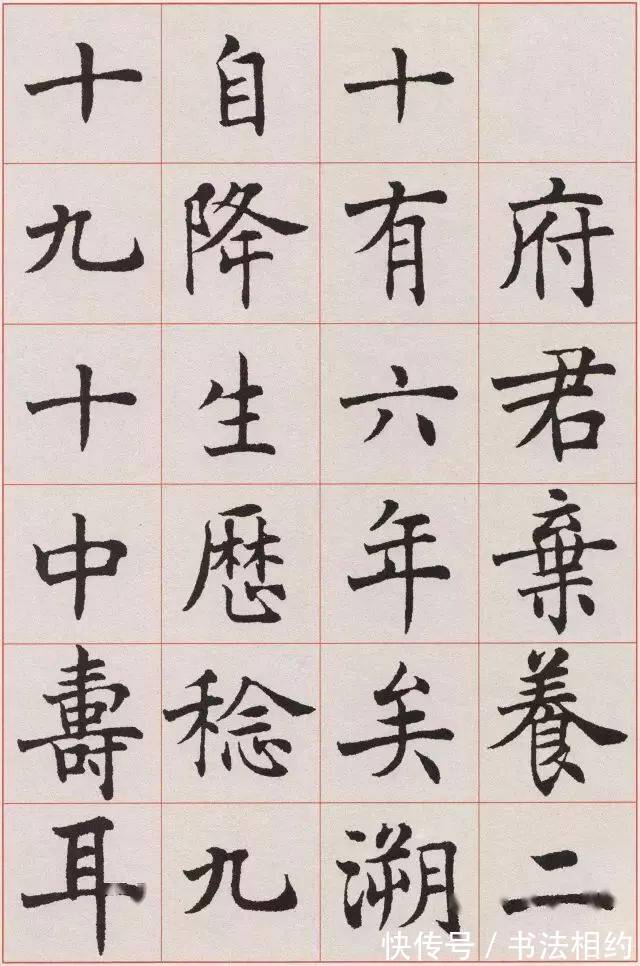 府君棄養二
十有六年矣溯
自降生歷稔九
十九十中壽耳
快传号/书法相约